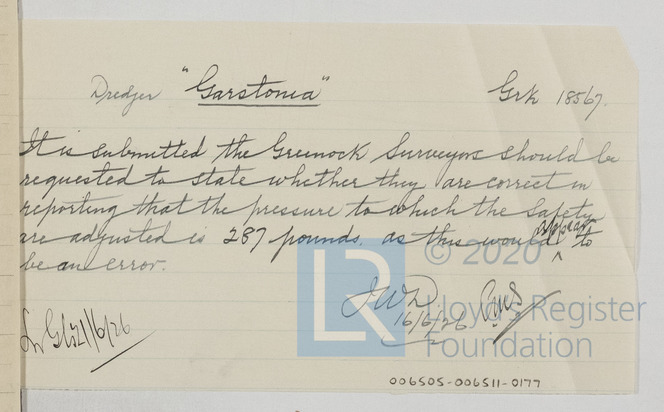 Dredger "Garstonia" Grk 18567.
It is submitted the Greenock Surveyors should be
requested to state whether they are correct in
reporting that the pressure to which the Safety
are adjusted is 287 pounds. as this would appear to
be an error.
JWD
16/6/26
21/6/26
© 2020
LR
Lloyd's Register
Foundation
006505-006511-0177